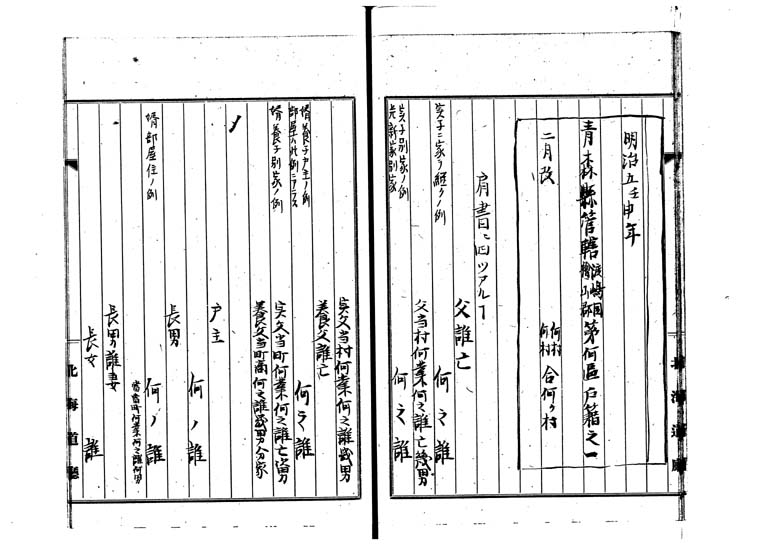 明治五壬申年
青森縣管轄渡嶋國檜山郡第何區戸籍之一
二月改
何村何村合何ヶ村
肩書ニ四ツアルー
父誰亡
実子ニ家ヲ継クノ例
何之誰
実子別家ノ例
父当村何業何之誰亡幾男
何之誰
北海道廳
実父当村何業何之誰幾男
養父誰亡
婿養子戸主ノ例
何之誰
婿養子別家ノ例
実父当町何業何之誰亡幾男
養父当町商何之誰幾男分家
戸主
何ノ誰
長男
婿部屋住ノ例
何ノ誰
長男誰妻
長女
誰
北海道廳